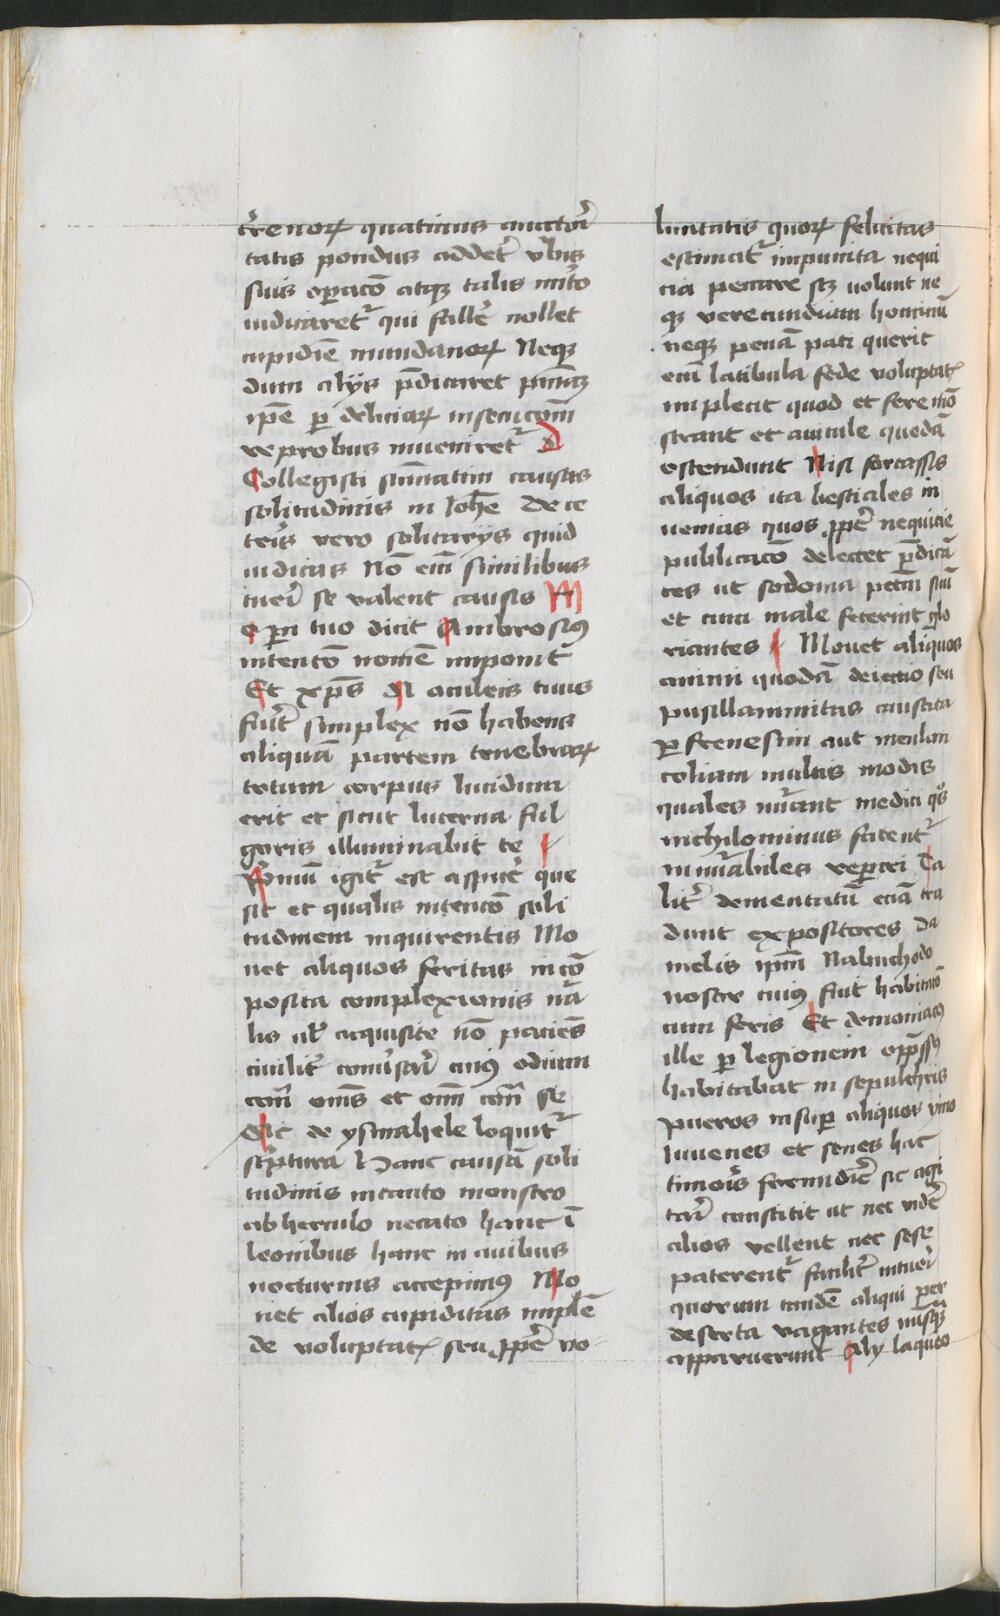 t̉renoꝝ quatinus auctori
tatis pondus addet̉ v̉bis
suis oꝑacō atqꝫ talis mito
iudicaret̉ qui fallē nollet
cupidīe mundanoꝝ Neqꝫ
dum alijs p̄dicaret
ip̄e ꝑ deliciaꝝ
reprobus inueniret̉ D
Collegisti sūmatim causas
solitudinis in Ioh̄e De ce
teris vero solitarijs quid
iudicas Nō em̄ similibus
tueri se valent causis M
Oꝑi tuo dicit Ambrosiꝰ
intencō nomē imponit
Et xp̄s Si oculus tuus
fuer̄t simplex nō habens
aliquā partem tenebraꝝ
totum corpus lucidum
erit et sicut lucerna ful
goris illuminabit te
Pⁱmū igit̉ est aspicē que
sit et qualis intencō soli
tudinem inquirentis Mo
uet aliquos feritas incō
posita complexionis nā
lis ul̉ acquisite nō paciēs
ciuilit̉ conuersari cuiꝰ odium
cont̄ om̄s et om̄ cont̄ se
Sic de ysmahele loquit̉
sc̉ptura Hanc causā soli
tudinis in canto monstro
ab hercule necato hanc ī
leonibus hanc in auibus
nocturnis accepimꝰ Mo
uet alios cupiditas implē
de voluptatꝭ seu ꝓpt̄ vo
luntatis quoꝝ felicitas
estimat̉ impunita nequi
cia peccare seꝫ uolunt ne
qꝫ verecundiam hominū
neqꝫ penā pati querit
em̄ latibula fede voluptatꝭ
implecit quod et fere mō
strant et auicule quedā
ostendunt Nisi forcassis
aliquos ita besticales in
uenias quos ꝓpt̄ nequicie
publicacō delectet p̄dicā
tes ut sodoma pctm̄ suū
et cum male fecerint glo
riantes Mouet aliquos
animi quedā deiectio seu
pusillanimitas causata
ꝑ frenesim aut melan
coliam multis modis
quales nūant medici qͦs
nichylominus fatent̉
innūabiles reperiri Ta
lit̉ dementatū eciā tra
dunt expositores Da
nielis ip̄m Nabuchodo
nosor cuiꝰ fuit habitacō
cum feris Et demoniacꝰ
ille ꝑ legionem opp̄ssꝰ
habitabat in sepulchris
Pueros insuꝑ aliquos ymo
Iuuenes et senes hac
timoris formidīe sic agi
tari constitit ut nec vidē
alios vellent nec sese
paterent̉ facilit̉ intueri
quorum tandē aliqui per
deserta vagantes nusqꝫ
apparuerunt Alij laqueo